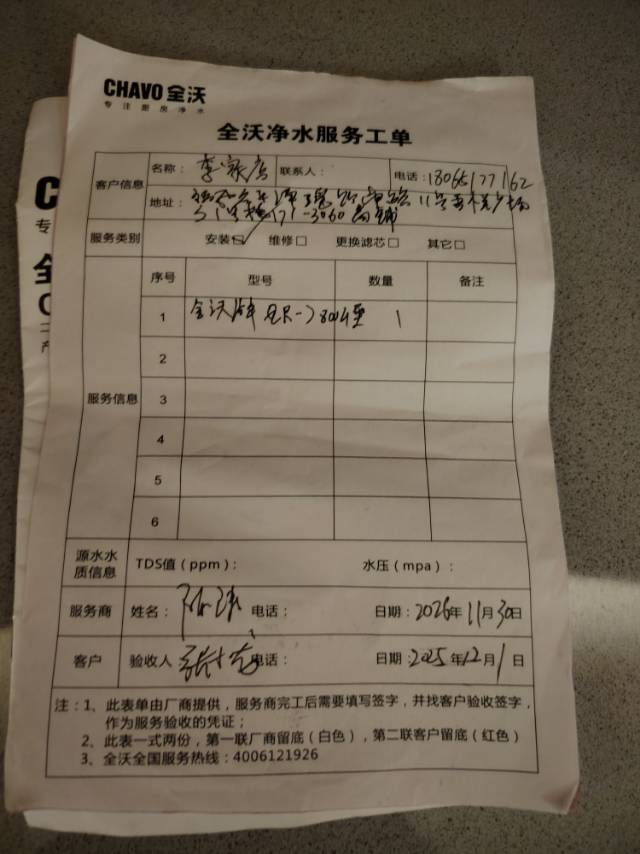 CHAVO 全沃
专注厨房净水
全沃净水服务工单
客户信息
名称： 联系人： 电话：18065177162
地址：
服务类别 安装☑ 维修□ 更换滤芯□ 其它□
服务信息
序号 型号 数量 备注
1 全沃 1
2
3
4
5
6
源水水质信息 TDS值（ppm）： 水压（mpa）：
服务商 姓名： 电话： 日期：2026年11月30日
客户 验收人 电话： 日期：2025年12月1日
注：1、此表单由厂商提供，服务商完工后需要填写签字，并找客户验收签字，
作为服务验收的凭证；
2、此表一式两份，第一联厂商留底（白色），第二联客户留底（红色）
3、全沃全国服务热线：4006121926